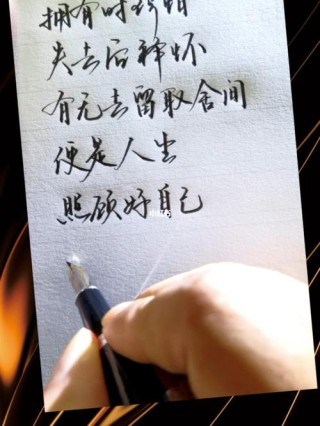 拥有时珍惜
失去后释怀
有无去留取舍间
便是人生
照顾好自己